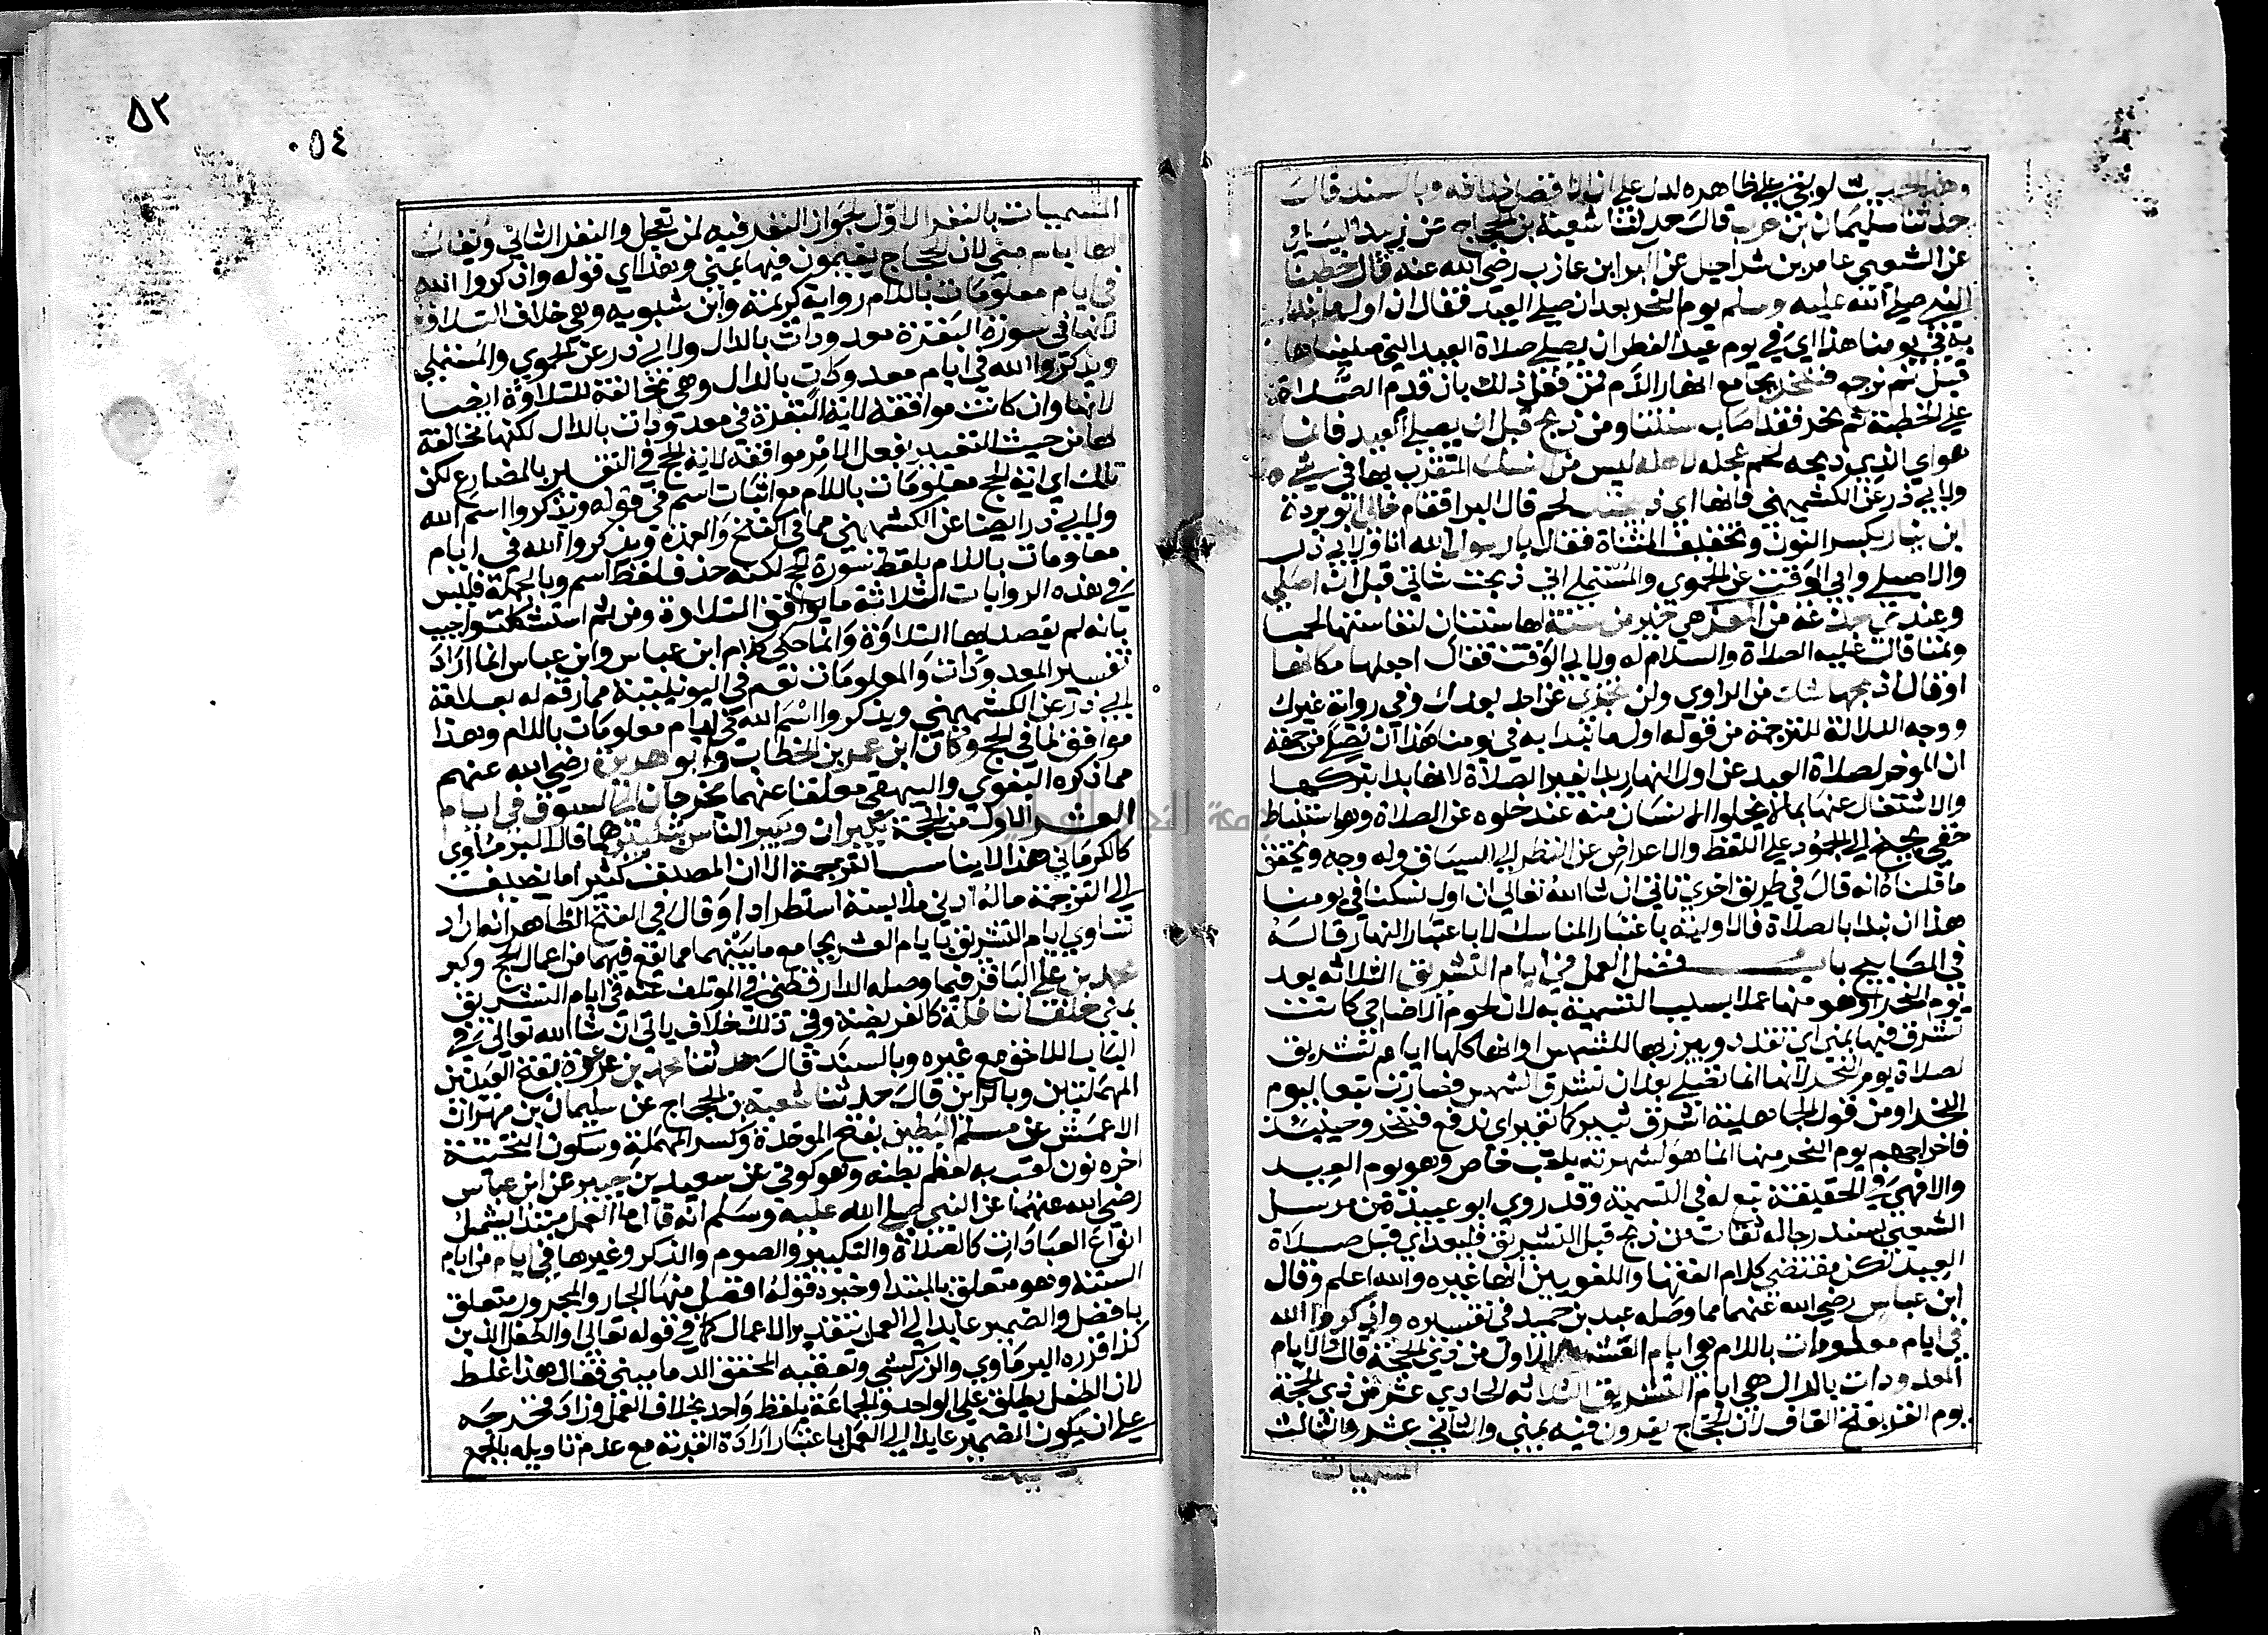 وهذا الحديث لو بقي على ظاهره لدل على ان الافضل خلافه وبالسند قال
حدثنا سليمان بن حرب قال حدثنا شعبة بن الحجاج عن زبيد اليامي
عن الشعبي عامر بن شراحيل عن البرا ابن عازب رضي الله عنه قال خطبنا
النبي صلى الله عليه وسلم يوم النحر بعد ان صلى العيد فقال ان اول ما نبدا
به في يومنا هذا اي في يوم عيد الفطر ان يصلي صلاة العيد التي صليناها
قبل ثم نرجع فننحر بجامع انهار الدم فمن فعل ذلك بان قدم الصلاة
على الخطبة ثم نحر فقد اصاب سنتنا ومن ذبح قبل ان يصلي العيد فانما
هو اي الذي ذبحه لحم عجله لاهله ليس من النسك المتقرب بها في شي
ولابي ذر عن الكشميهني فانها اي ذبيحته لحم قال البرا فقام خالي ابو بردة
ابن نيار بكسر النون وتخفيف المثناة فقال يا رسول الله انا ولابي ذر
والاصيلي وابي الوقت عن الحموي والمستملي اني ذبحت شاتي قبل ان اصلي
وعندي جذعة من المعز هي خير من مسنة لها سنتان لنفاستها لحما
وثمنا قال عليه الصلاة والسلام له ولابي الوقت فقال اجعلها مكانها
او قال اذبحها شك من الراوي ولن تجزي عن احد بعدك وفي رواية غيرك
ووجه الدلالة للترجمة من قوله اول ما نبدا به في يومنا هذا ان نصلي من جهة
ان الموخر لصلاة العيد عن اول النهار بدا بغير الصلاة لانه بدا بتركها
والاشتغال عنها بما لا يخلوا الانسان منه عند خلوه عن الصلاة وهو استنباط
خفي يجنح الى الجمود على اللفظ والاعراض عن النظر الى السياق وله وجه ويحقق
ما قلناه انه قال في طريق اخرى تاتي ان شا الله تعالى ان اول نسكنا في يومنا
هذا ان نبدا بالصلاة فالاولية باعتبار المناسك لا باعتبار النهار قاله
في المصابيح باب فضل العمل في ايام التشريق الثلاثه بعد
يوم النحر او هو منها عملا بسبب التسمية به لان لحوم الاضاحي كانت
تشرق فيها بمنى اي تقدد ويبرز بها للشمس او انها كلها ايام تشريق
لصلاة يوم النحر لانها انما تصلى بعد ان تشرق الشمس فصارت تبعا ليوم
النحر او من قول الجاهلية اشرق ثبير كما نغير اي ندفع فننحر وحينئذ
فاخراجهم يوم النحر منها انما هو لشهرته بلقب خاص وهو يوم العيد
والا فهي في الحقيقة تبع له في التسمية وقد روى ابو عبيدة من مرسل
الشعبي بسند رجاله ثقات من ذبح قبل التشريق فليعد اي قبل صلاة
العيد لكن مقتضى كلام الفقها واللغويين انها غيره والله اعلم وقال
ابن عباس رضي الله عنهما مما وصله عبد بن حميد في تفسيره واذكروا الله
في ايام معلومات باللام هي ايام العشر الاول من ذي الحجة قال والايام
المعدودات بالدال هي ايام التشريق الثلاثه الحادي عشر من ذي الحجة
يوم القر بفتح القاف لان الحجاج يقرون فيه بمنى والثاني عشر والثالث
المسميات
٥٢
٠٥٤
المسميات بالنفر الاول لجواز النفر فيه لمن تعجل والنفر الثاني ويقال
لها ايام منى لان الحجاج يقيمون فيها بمنى وهذا اي قوله واذكروا الله
في ايام معلومات باللام رواية كريمة وابن شبويه وهي خلاف التلاوة
لانها في سورة البقرة معدودات بالدال ولابي ذر عن الحموي والمستملي
ويذكروا الله في ايام معدودات بالدال وهي مخالفة للتلاوة ايضا
لانها وان كانت موافقة لاية البقرة في معدودات بالدال لكنها مخالفة
لها من حيث التعبير بفعل الامر موافقة لاية الحج في التعبير بالمضارع لكن
تلك اي اية الحج معلومات باللام مع اثبات اسم في قوله ويذكروا اسم الله
ولابي ذر ايضا عن الكشميهني مما في الفتح والعمدة ويذكروا الله في ايام
معلومات باللام بلفظ سورة الحج لكنه حذف لفظ اسم وبالجملة فليس
في هذه الروايات الثلاثة ما يوافق التلاوة ومن ثم استشكلت واجيب
بانه لم يقصد بها التلاوة وانما حكى كلام ابن عباس وابن عباس انما اراد
تفسير المعدودات والمعلومات نعم في اليونينية مما رقم له بعلامة
لابي ذر عن الكشميهني ويذكروا اسم الله في ايام معلومات باللام وهذا
موافق لما في الحج وكان ابن عمر بن الخطاب وابو هريرة رضي الله عنهم
مما ذكره البغوي والبيهقي معلقا عنهما يخرجان الى السوق في ايام
العشر الاول من الحجة يكبران ويكبر الناس بتكبيرهما قال البرماوي
كالكرماني هذا لا يناسب الترجمة الا ان المصنف كثيرا ما يضيف
الى الترجمة ما له ادنى ملابسة استطرادا وقال في الفتح الظاهر انه اراد
تساوي ايام التشريق بايام العشر بجامع ما بينهما مما يقع فيهما من اعمال الحج وكبر
محمد بن علي الباقر فيما وصله الدارقطني في الموتلف عنه في ايام التشريق
بمنى خلف النافلة كالفريضة وفي ذلك خلاف ياتي ان شا الله تعالى في
الباب اللاحق مع غيره وبالسند قال حدثنا محمد بن عرعرة بفتح العينين
المهملتين وبالراين قال حدثنا شعبة بن الحجاج عن سليمان بن مهران
الاعمش عن مسلم البطين بفتح الموحدة وكسر المهملة وسكون التحتية
اخره نون لقب به لعظم بطنه وهو كوفي عن سعيد بن جبير عن ابن عباس
رضي الله عنهما عن النبي صلى الله عليه وسلم انه قال ما العمل مبتدا يشمل
انواع العبادات كالصلاة والتكبير والصوم والذكر وغيرها في ايام من ايام
السنة وهو متعلق بالمبتدا وخبره قوله افضل منها الجار والمجرور متعلق
بافضل والضمير عايد الى العمل بتقدير الاعمال كما في قوله تعالى او الطفل الذين
كذا قرره البرماوي والزركشي وتعقبه المحقق الدماميني فقال هذا غلط
لان الطفل يطلق على الواحد والجماعة بلفظ واحد بخلاف العمل وزاد فخرجه
على ان يكون الضمير عايدا الى العمل باعتبار ارادة القربة مع عدم تاويله بالجمع